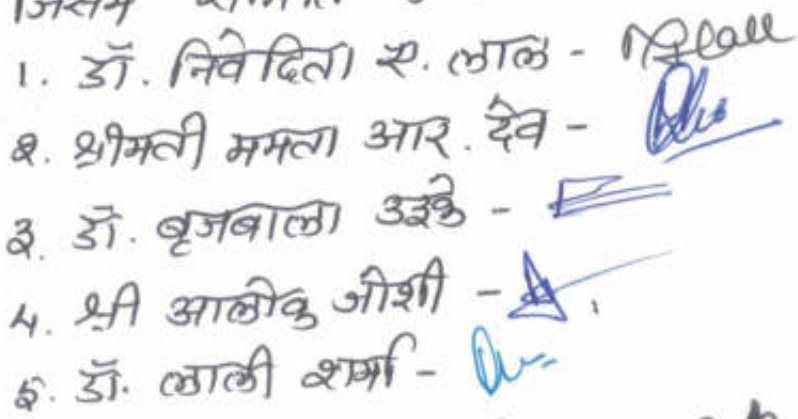 जिसमें
1. डॉ. निवेदिता ए. लाल -
2. श्रीमती ममता आर. देव -
3. डॉ. बृजबाला उइके -
4. श्री आलोक जोशी -
5. डॉ. लाली शर्मा -